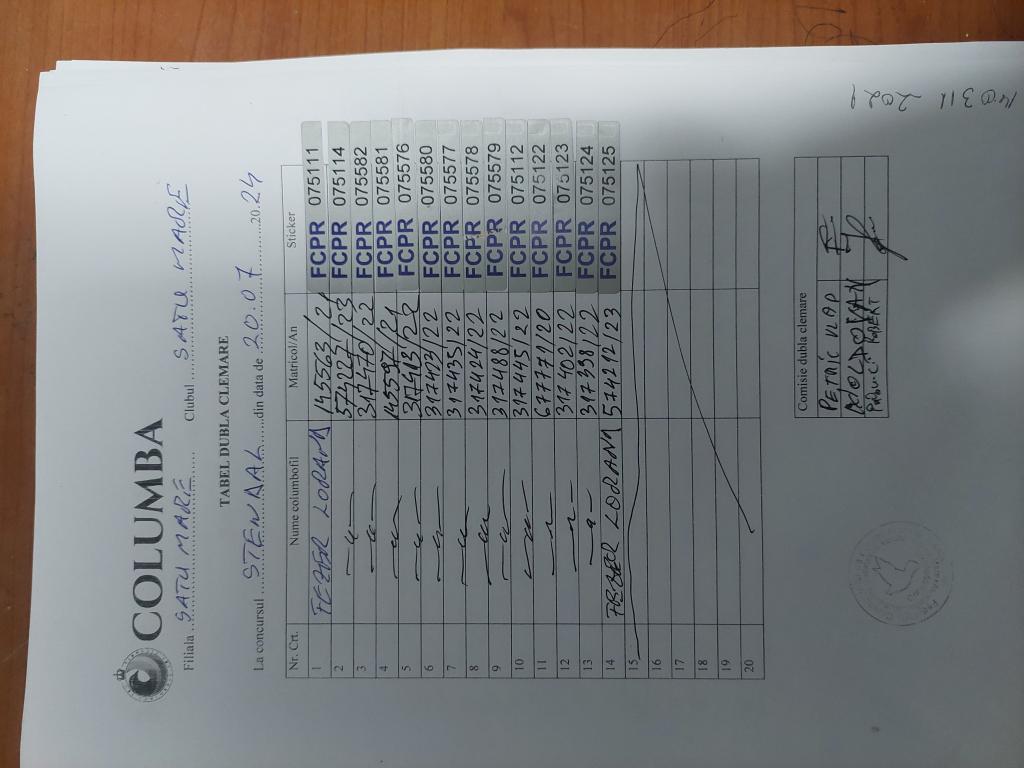 COLUMBA
Filiala ...SATU MARE........ Clubul ....SATU MARE
TABEL DUBLA CLEMARE
La concursul ...STENDAL.....din data de ..20.07......20.24
Nr. Crt. Nume columbofil Matricol/An Sticker
1 FEZER LORAND 145563/21 FCPR 075111
2 —"— FCPR 075114
3 —"— 317440/22 FCPR 075582
4 —"— 14559/21 FCPR 075581
5 —"— 317413/22 FCPR 075576
6 —"— 317473/22 FCPR 075580
7 —"— 317435/22 FCPR 075577
8 —"— 317424/22 FCPR 075578
9 —"— 317488/22 FCPR 075579
10 —"— 317445/22 FCPR 075112
11 —"— 67771/20 FCPR 075122
12 —"— 317402/22 FCPR 075123
13 —"— 317398/22 FCPR 075124
14 LORAND 57412/23 FCPR 075125
15
16
17
18
19
20
Comisie dubla clemare
PETRIC VLAD
MOLDOVAN
ROBERT
2021